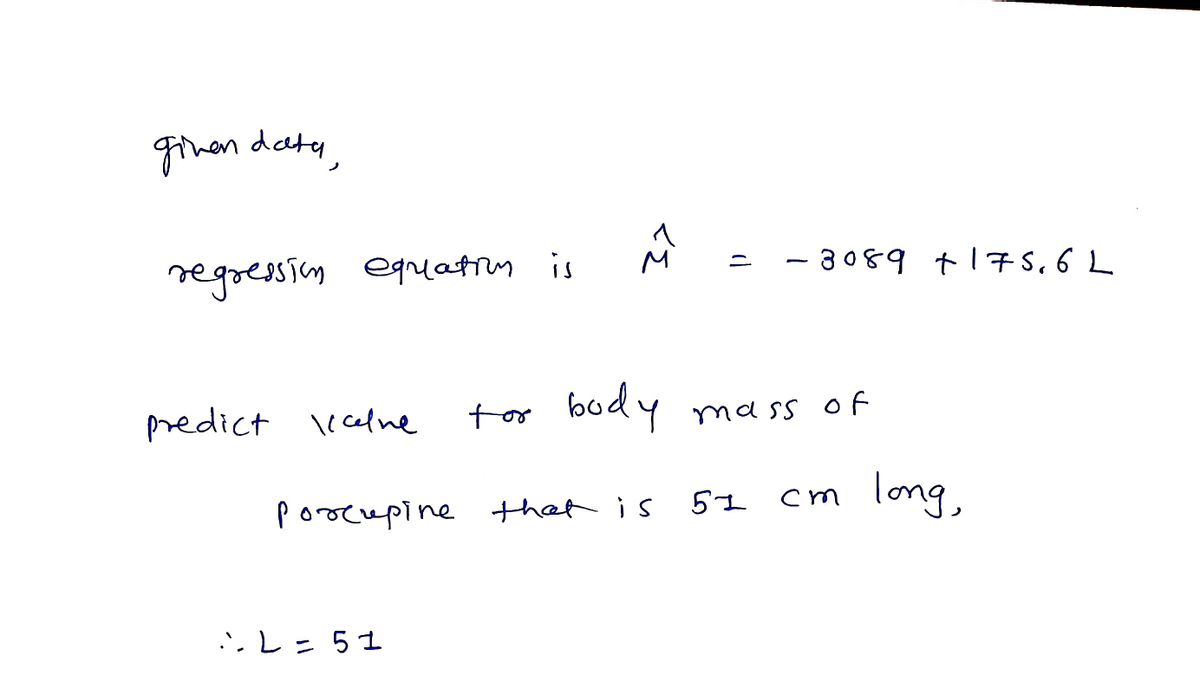 given data,
regression equation is M̂ = - 3089 + 175.6 L
predict value for body mass of
porcupine that is 51 cm long,
∴ L = 51